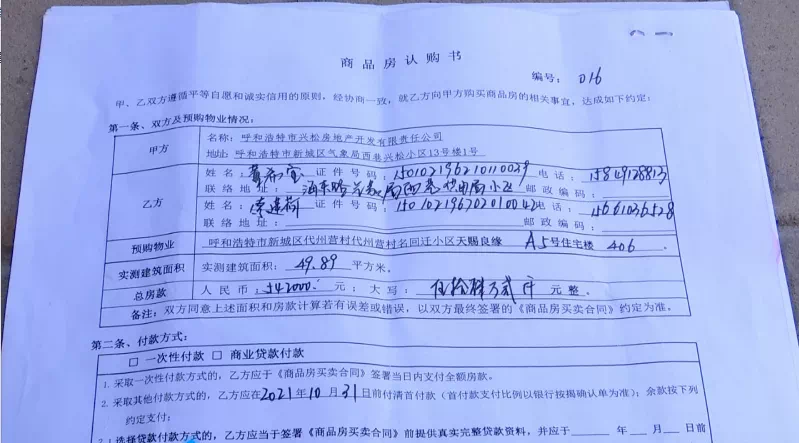 商品房认购书
编号：016
甲、乙双方遵循平等自愿和诚实信用的原则，经协商一致，就乙方向甲方购买商品房的相关事宜，达成如下约定：
第一条、双方及预购物业情况：
甲方
名称：呼和浩特市兴松房地产开发有限责任公司
地址：呼和浩特市新城区气象局西巷兴松小区13号楼1号
乙方
姓名： 证件号码：150102196210110039 电话：15849128813
联络地址： 邮政编码：
姓名： 证件号码： 电话：15661036528
联络地址： 邮政编码：
预购物业
呼和浩特市新城区代州营村代州营村名回迁小区天赐良缘 A5号住宅楼 406.
实测建筑面积
实测建筑面积：49.89平方米。
总房款
人民币：542000.元；大写： 元整。
备注：双方同意上述面积和房款计算若有误差或错误，以双方最终签署的《商品房买卖合同》约定为准。
第二条、付款方式：
□ 一次性付款 □ 商业贷款付款
1. 采取一次性付款方式的，乙方应于《商品房买卖合同》签署当日内支付全额房款。
2. 采取其他付款方式的，乙方应在2021年10月31日前付清首付款（首付款支付比例以银行按揭确认单为准）；余款按下列
约定支付：
2.1选择贷款付款方式的，乙方应当于签署《商品房买卖合同》前提供真实完整贷款资料，并应于 年 月 日前